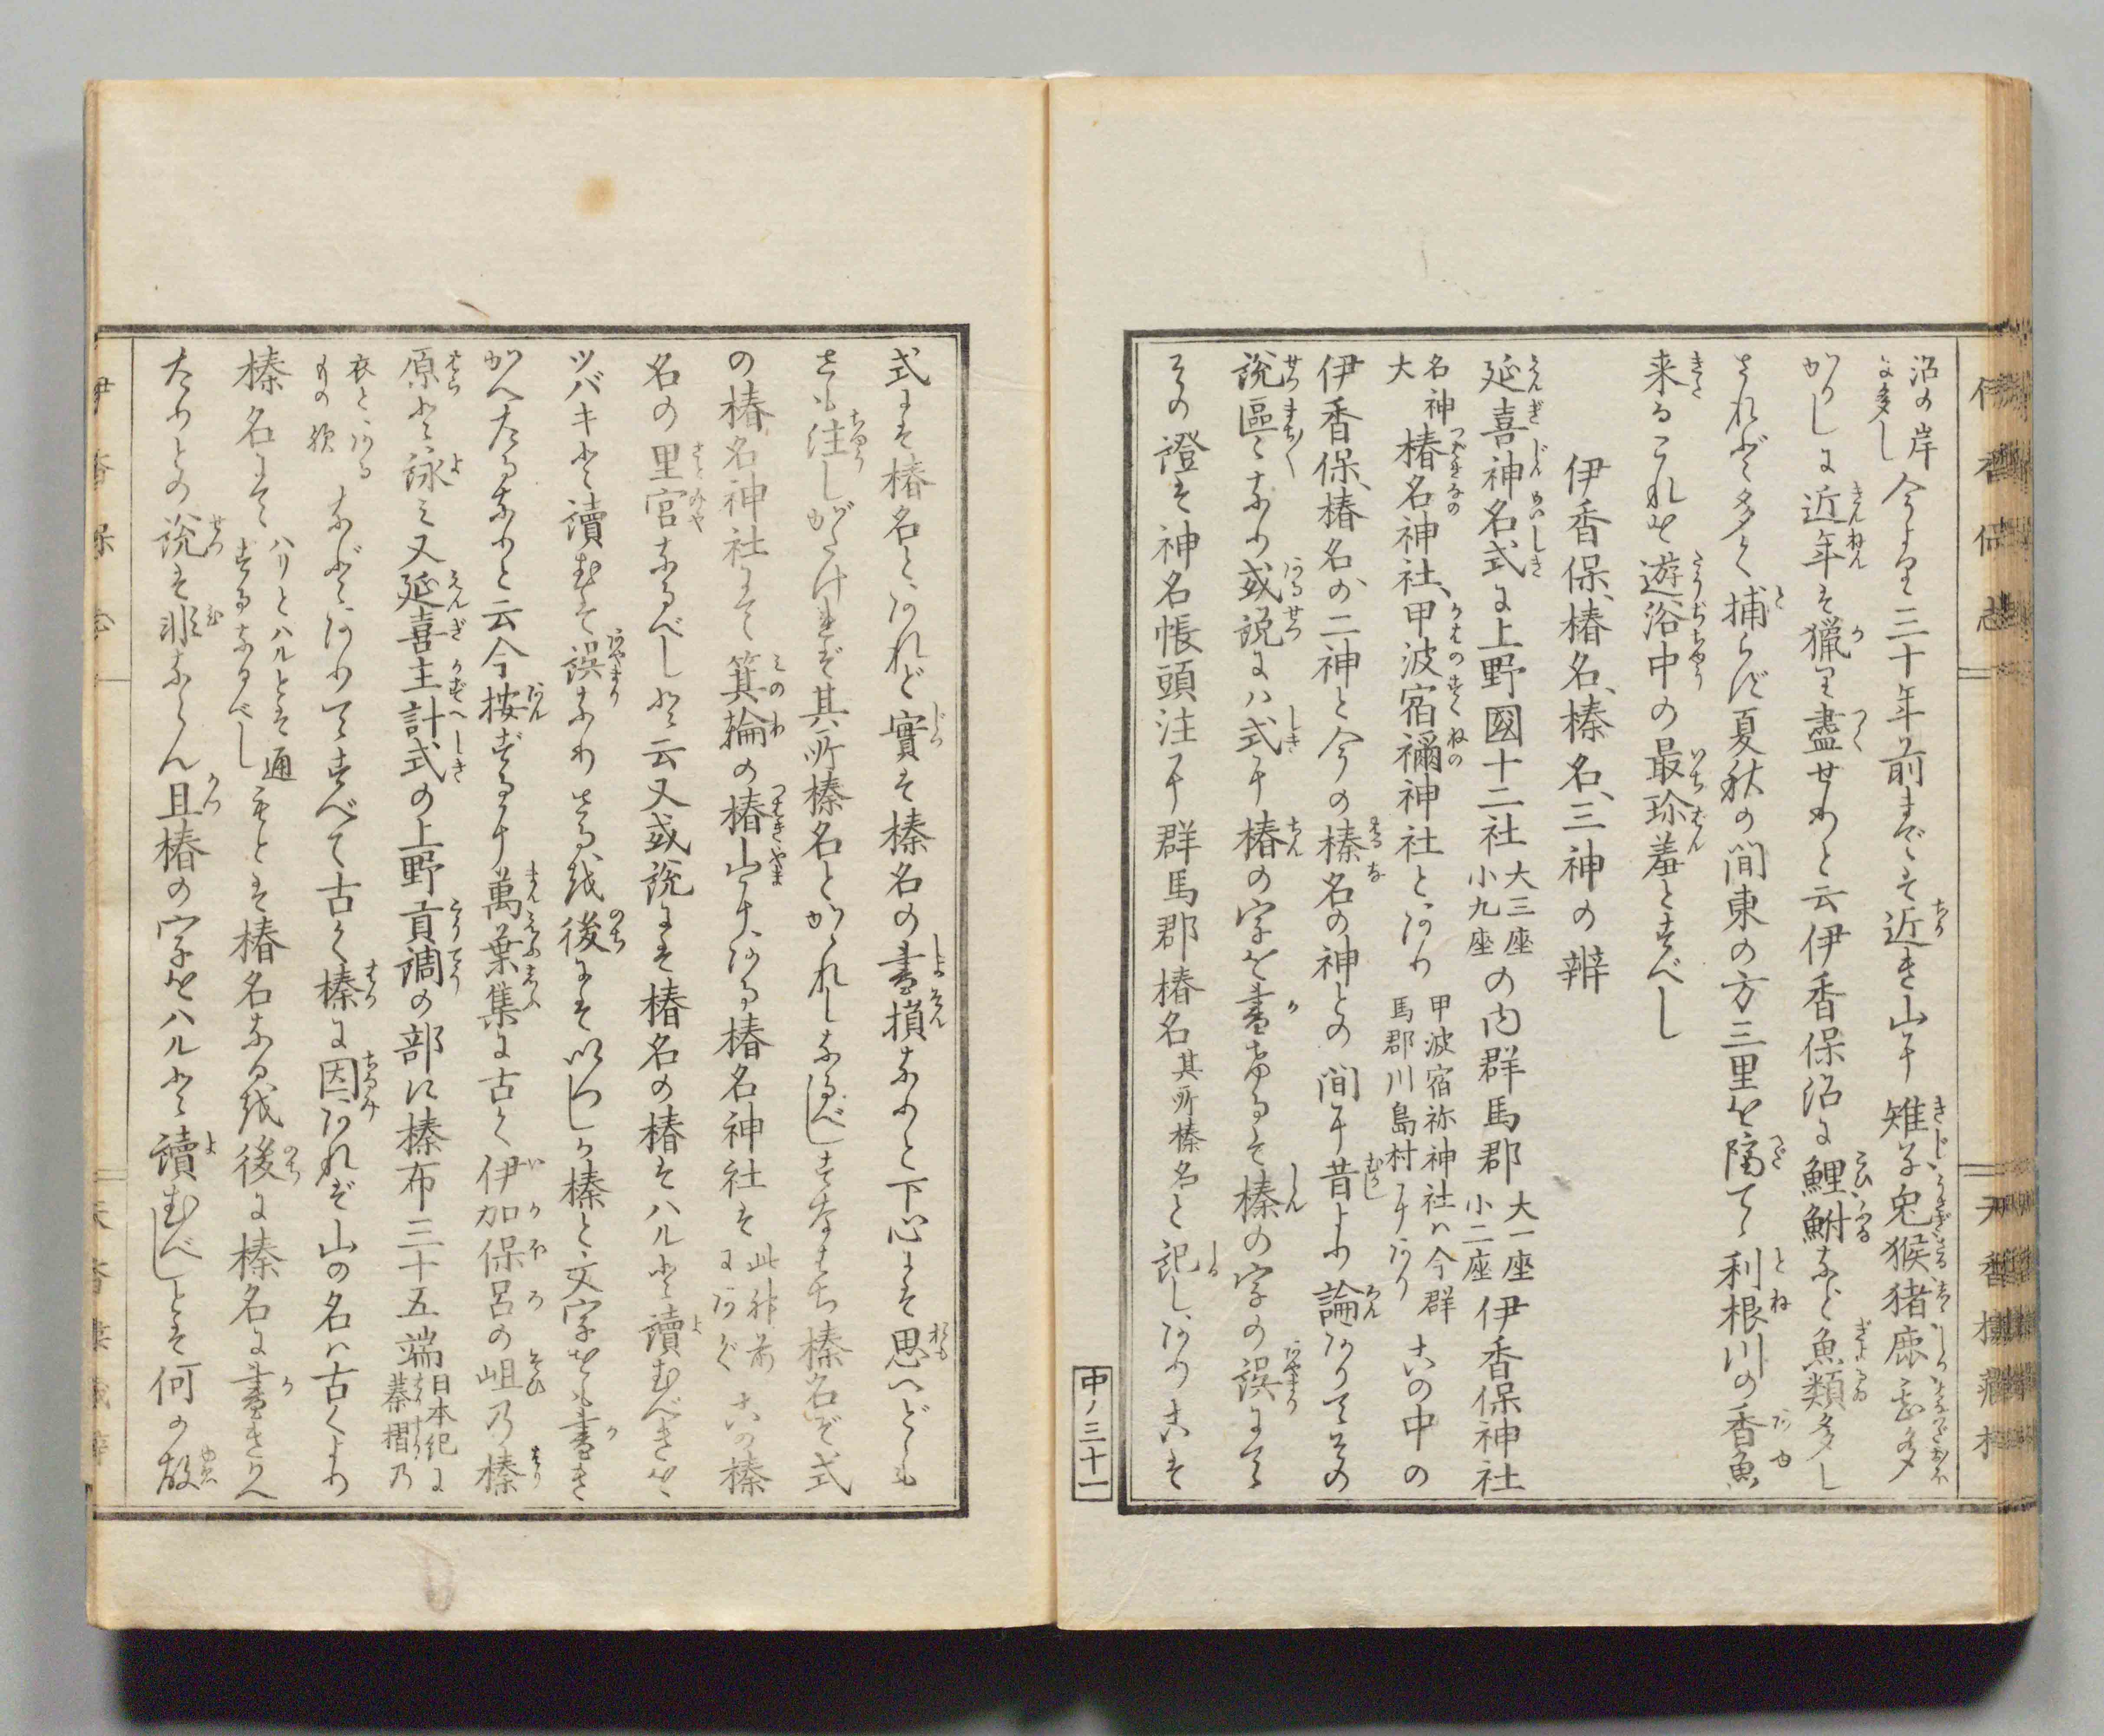 沼の岸
に多し
今より三十年前までは近き山に雉子兎猴猪鹿永多
かりしに近年は猟り盡せりと云伊香保沼に鯉鮒など魚類多し
されど多く捕らず夏秋の間東の方三里を隔てゝ利根川の香魚
来るこれを遊浴中の最珍羞とすべし
伊香保、椿名、榛名、三神の辨
延喜神名式に上野國十二社
大三座
小九座
の内群馬郡
大一座
小二座
伊香保神社
名神
大
椿名神社、甲波宿禰神社とあり
甲波宿祢神社ハ今群
馬郡川島村ニあり
右の中の
伊香保、椿名の二神と今の榛名の神との間に昔より論ありてその
説區々なり或説にハ式に椿の字を書るは榛の字の誤にて
その證は神名帳頭注に群馬郡椿名
其所榛名と
記しありこは
中ノ三十一
式には椿名とあれど實は榛名の書損なりと下心には思へども
さも注しがたければ其所榛名とかゝれしなるべしすなはち榛名ぞ式
の椿名神社にて箕輪の椿山にある椿名神社は
此神前
にあらず
右の榛
名の里宮なるべしと云又或説には椿名の椿はハルと讀むべきを
ツバキと讀むは誤なりさる故後にはいつしか榛と文字をも書き
かへたるなりと云今按ずるに萬葉集に古く伊加保呂の岨乃榛
原と詠み又延喜主計式の上野貢調の部に榛布三十五端
日本紀に
蓁摺乃
衣とある
もの歟
などありてすべて古く榛に因あれば山の名ハ古くより
榛名にて
ハリとハルとは通
ずるなるべし
もとは椿名なる故後に榛名に書きかへ
たりとの説は非ならん且椿の字をハルと讀むべしとは何の故